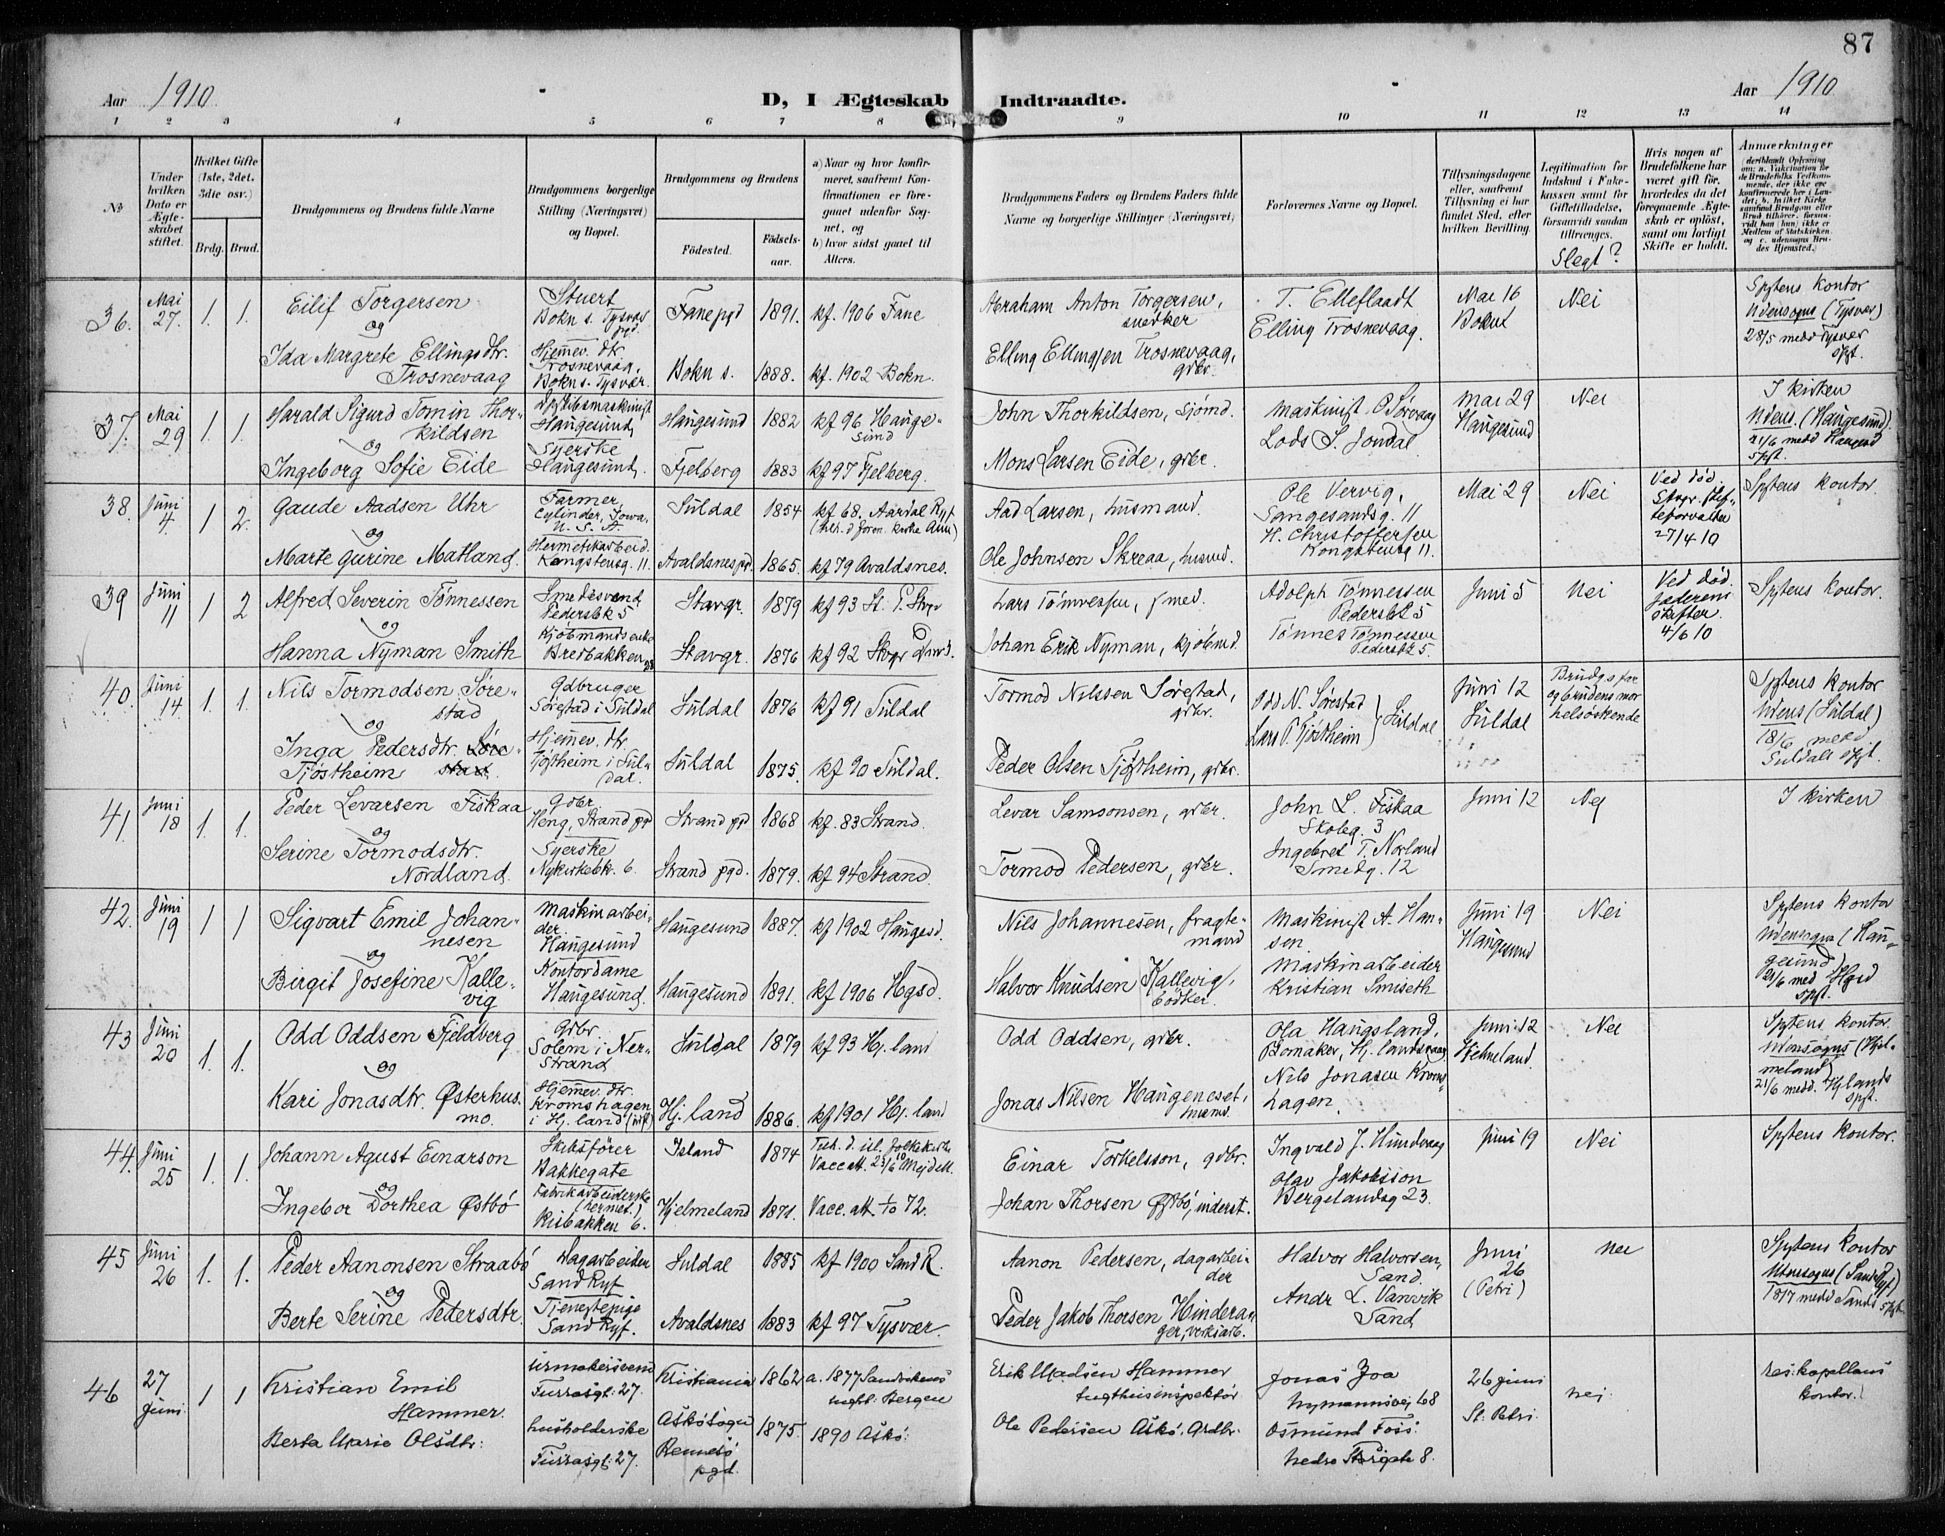 87
Aar 1910
D, I Ægteskab Indtraadte.
Aar 1910
1 2 3 4 5 6 7 8 9 10 11 12 13 14
No
Under hvilken Dato er Ægteskabet stiftet.
Hvilket Gifte (1ste, 2det, 3die osv.)
Brdg. Brud.
Brudgommens og Brudens fulde Navne
Brudgommens borgerlige Stilling (Næringsvei) og Bopæl.
Brudgommens og Brudens
Fødested. Fødselsaar.
a) Naar og hvor konfirmeret, saafremt Konfirmationen er foregaaet udenfor Sognet, og
b) hvor sidst gaaet til Alters.
Brudgommens Faders og Brudens Faders fulde Navne og borgerlige Stillinger (Næringsvei)
Forlovernes Navne og Bopæl.
Tillysningsdagene eller, saafremt Tillysning ei har fundet Sted, efter hvilken Bevilling.
Legitimation for Indskud i Enkekassen samt for Giftetilladelse, forsaavidt saadan tiltrænges.
Slegt?
Hvis nogen af Brudefolkene har været gift før, hvorledes da det foregaaende Ægteskab er opløst, samt om lovligt Skifte er holdt.
Anmærkninger
36. Mai 27. 1. 1.
Eilif Torgersen
og
Ida Margrete Ellingsdtr. Trosnevaag
Stuert
Bokn s. Tysvær pgd.
Hjemmev. dtr.
Trosnevaag, Bokn s. Tysvær.
Fane pgd 1891. kf. 1906 Fane
Bokn s. 1888. kf. 1902 Bokn.
Abraham Anton Torgersen, snedker
Elling Ellingsen Trosnevaag, grbr.
T. Elleflaadt
Elling Trosnevaag.
Mai 16
Bokn
Nei
Spytens kontor
Udensogns (Tysvær)
28/5 medd Tysvær Spgt.
37. Mai 29 1. 1.
Harald Sigurd Tomin Thorkildsen
og
Ingeborg Sofie Eide
Haugesund
Syerske
Haugesund.
Haugesund 1882 kf 96 Haugesund
Fjelberg 1883 kf 97 Fjelberg.
John Thorkildsen, sjømd.
Mons Larsen Eide, grbr.
Maskinist O Sørvaag
Lods S. Jondal.
Mai 29
Haugesund
Nei
I kirken
Udens. (Haugesund).
38. Juni 4. 1 2.
Gaude Aadsen Uhr
og
Marte Gurine Matland.
Farmer,
Cylinder, Iowa, U.S.A.
Hermetikarbeid.
Kongstensg. 11.
Suldal 1854 kf 68. Aardal Ryf
Avaldsnes pr 1865. kf 79 Avaldsnes.
Aad Larsen, husmand.
Ole Johnsen Skreaa, husmd.
Ole Vervig,
Langesandsg. 11
H. Christoffersen
Kongstensg 11.
Mai 29
Nei
Ved død.
Stvgr. skifteforvalter
27/4 10
Spytens kontor.
39 Juni 11 1 2
Alfred Severin Tønnessen
og
Hanna Nyman Smith
Smedesvend
Pedersbk 5
Kjøbmandsenke
Bredbakken 23
Stavgr. 1879 kf 93 St. P. Stvgr
Stavgr. 1876 kf 92 Stvgr Domk.
Lars Tønnessen, smed.
Johan Erik Nyman, kjøbmd.
Adolph Tønnessen
Pedersbk 5
Tønnes Tønnessen
Pedersbk 5.
Juni 5
Nei
Ved død.
Jæderens skifter
4/6 10
Spytens kontor.
40. Juni 14 1. 1.
Nils Tormodsen Sørestad
og
Inga Pedersdtr. Tjøstheim
Gdbruger
Sørestad i Suldal
Hjemmev. dtr.
Tjøstheim i Suldal.
Suldal 1876 kf 91 Suldal
Suldal 1875. kf 90 Suldal.
Tormod Nilssen Sørestad, grbr.
Peder Olsen Tjøstheim, grbr.
Odd N. Sørestad
Lars P. Tjøstheim } Suldal
Juni 12
Suldal
Brudgs far og brudens mor helsøskende
Spytens kontor
Udens (Suldal)
18/6 medd Suldals spgt.
41. Juni 18 1. 1.
Peder Levarsen Fiskaa
og
Serine Tormodsdtr. Nordland.
Gdbr.
Heng, Strand pgd
Syerske
Nykirkebk. 6.
Strand pgd 1868 kf. 83 Strand.
Strand pgd. 1879. kf 94 Strand.
Levar Samsonsen, grbr.
Tormod Pedersen, grbr.
John L. Fiskaa
Skoleg. 3
Ingebret T. Norland
Smedg. 12
Juni 12
Nej
I kirken
42. Juni 19 1 1
Sigvart Emil Johannesen
og
Birgit Josefine Kallevig
Maskinarbeider
Haugesund
Kontordame
Haugesund.
Haugesund 1887. kf 1902 Haugesd.
Haugesund 1891. kf 1906 Hgsd.
Nils Johannesen, fragtemand
Halvor Knudsen Kallevig, bødker.
Maskinist A. Hansen
Maskinarbeider
Kristian Smiseth
Juni 19
Haugesund
Nei
Spytens kontor
Udensogns (Haugesund)
43 Juni 20 1. 1.
Odd Oddsen Fjeldberg
og
Kari Jonasdtr. Østerhusmo.
Grbr
Solem i Nerstrand
Hjemmev. dtr.
Kromshagen i Hj. land
Suldal 1879 kf 93 Hj. land
Hj. land 1886. kf 1901 Hj. land
Odd Oddsen, grbr.
Jonas Nilsen Haugeneset, husmd.
Ola Haugsland,
Nils Jonasen Kromshagen.
Juni 12
Hjelmeland.
Nei
Spytens kontor.
Udensogns (Hjelmeland)
21/6 medd. Hjlands Spgt.
44. Juni 25 1. 1.
Johann Agust Einarson
og
Ingebor Dorthea Østbø
Skibsfører
Bakkegate
Fabrikarbeiderske (hermet.)
Risbakken 6.
Island 1874
Hjelmeland 1871. Vacc. att. 72.
Einar Torkelsson, gdbr.
Johan Thorsen Østbø, inderst.
Ingvald J. Hundvaag
Olav Jakobsson
Bergelandsg 23.
Juni 19
Nei
Spytens kontor.
45 Juni 26 1. 1.
Peder Aanonsen Straabø
og
Berte Serine Pedersdtr.
Dagarbeider
Sand Ryf
Tjenestepige
Sand Ryf.
Suldal 1885 kf 1900 Sand R.
Avaldsnes 1883 kf 97 Tysvær.
Aanon Pedersen, dagarbeider
Peder Jakob Thorsen Hinderager, verksarb.
Halvor Halvorsen,
Sand.
Andr L. Vanvik
Sand
Juni 26
(Petri)
Nei
Spytens kontor
Utensogns (Sand Ryf)
18/7 medd Sands spgt
46 27 Juni 1 1
Kristian Emil Hammer.
Berta Marie Olsdtr:
Urmakersvend
Furrasgt. 27.
husholderske
Furrasgt: 27.
Kristiania 1862 a. 1877 Sandvikens Bergen
Askø sogn Rennesø pgd. 1875. 1890 Askø.
Erik Madsen Hammer
tugthusinspektør
Ole Pedersen Askø. Grdbr.
Jonas Joa
Nymannsvej 68
Osmund Foss:
26 Juni
St. Petri
nei.
res: kapellans kontor.